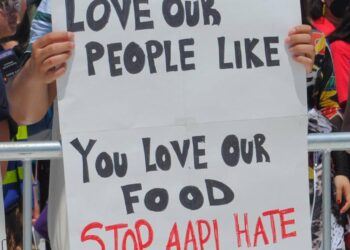 LOVE OUR
PEOPLE LIKE
YOU LOVE OUR
FOOD
STOP AAPI HATE